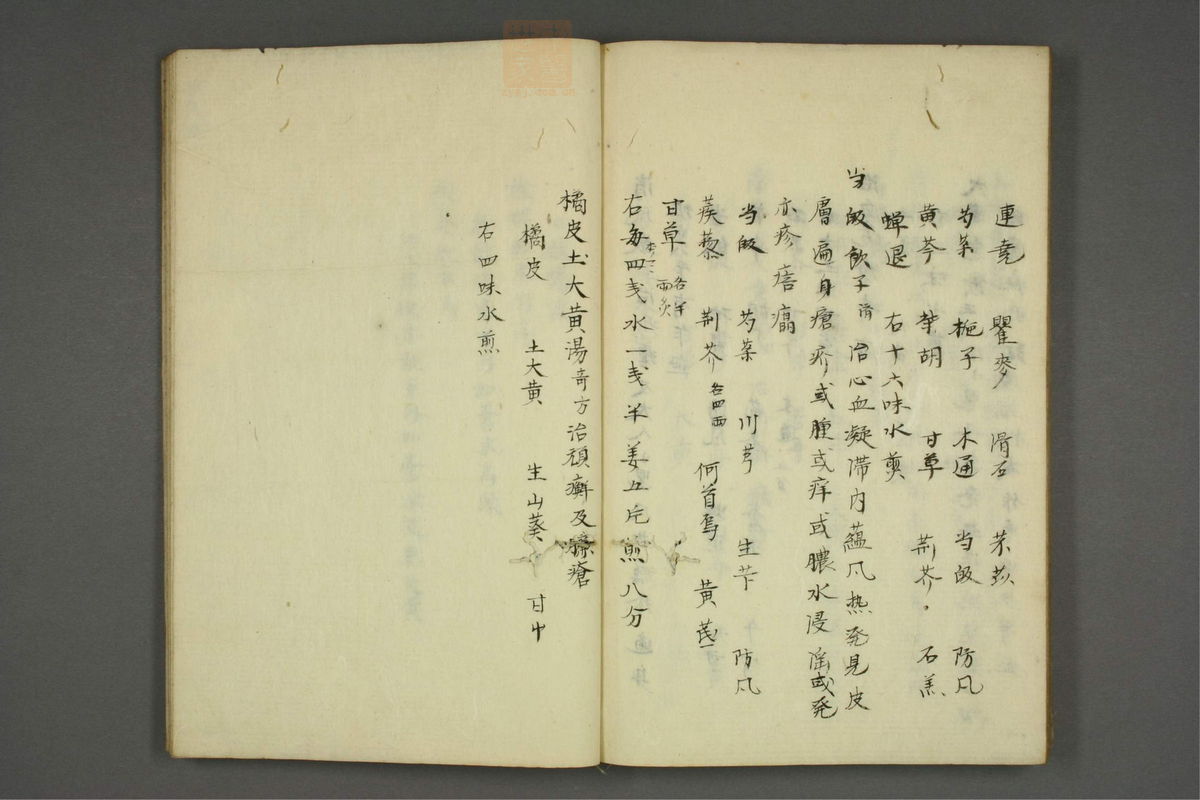 連尭　瞿麥　滑石　茉苁
芍薬　梔子　木通　当皈　防凡
黄芩　柴胡　甘草　荊芥　石羔
蝉退　右十六味水煎
当皈飲子済　治心血凝滞内蘊凡热発見皮
膚遍身瘡疥或腫或痒或膿水浸滛或発
亦疹㾦㿔
当皈　芍薬　川芎　生芐　防凡
蒺蔾　荊芥各四両　何首烏　黄茋
甘草各半両炙
右毎四戔水一戔半姜五片煎八分
橘皮土大黄湯奇方治頑癬及臁瘡
橘皮　土大黄　生山葵　甘中
右四味水煎